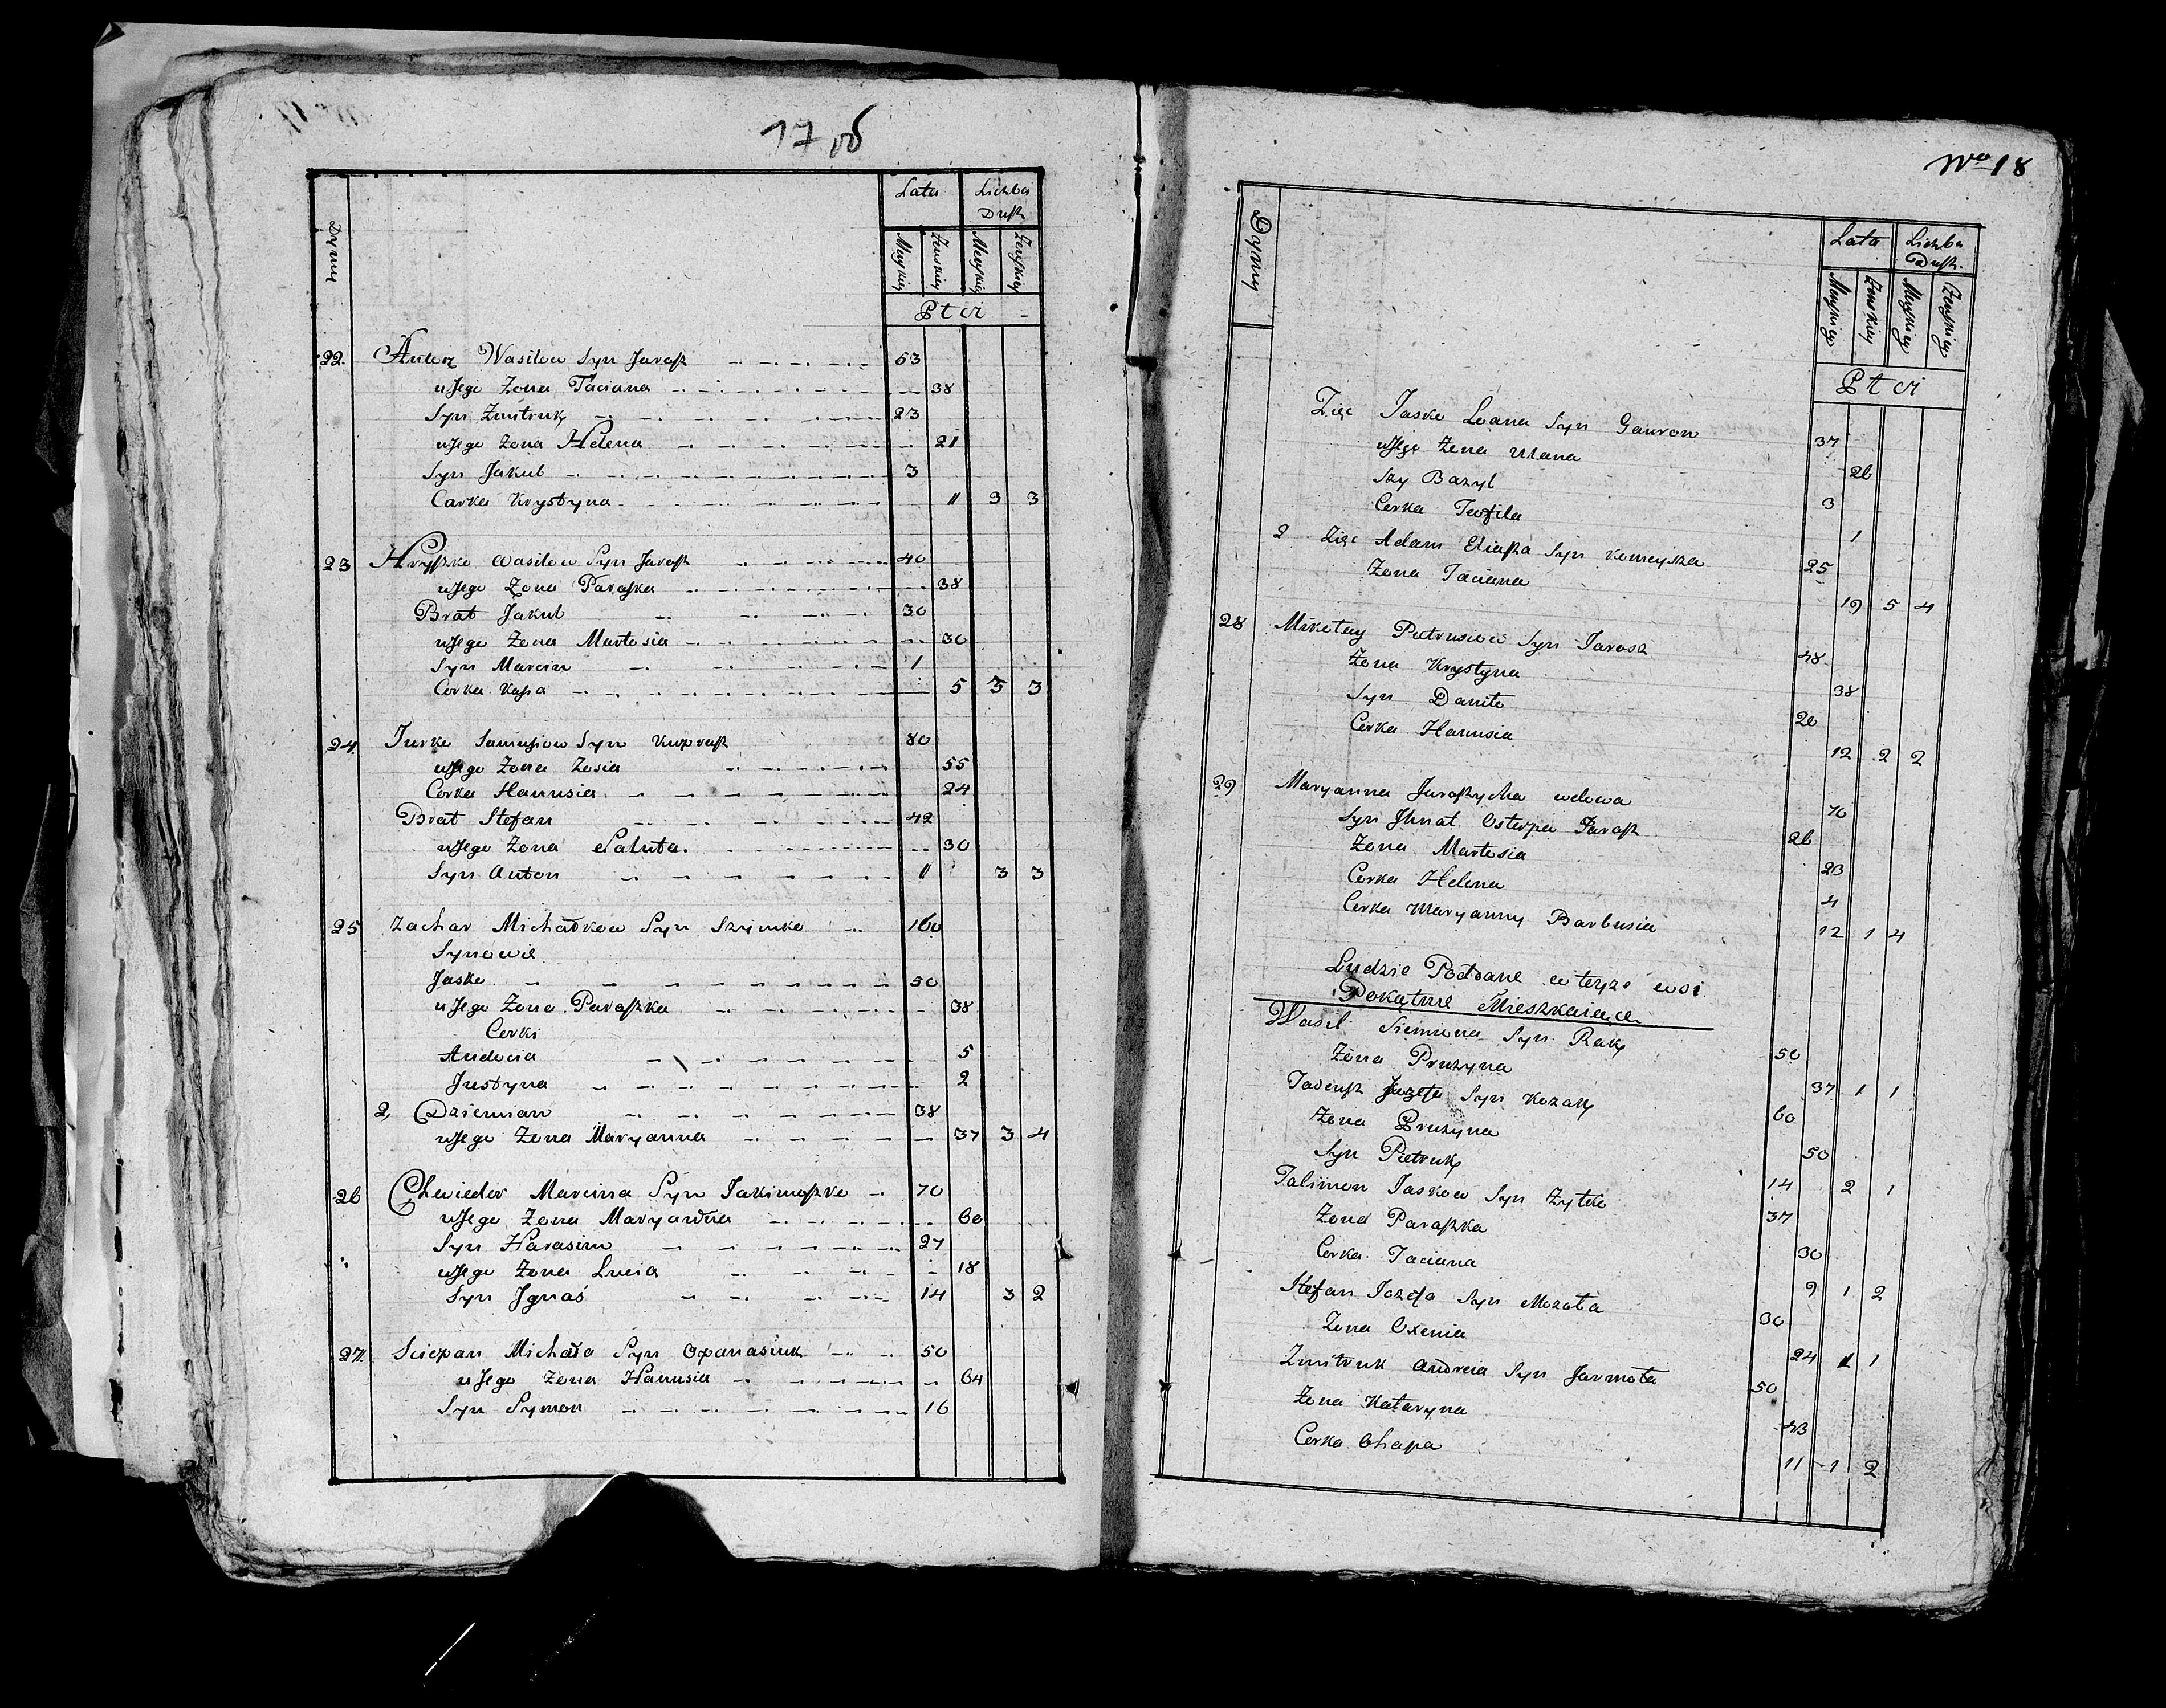 17 об
Dymy
Lata
Liczba Dusz
Męskiey Żenskiey Męskiey Żenskiey
Płci
22. Anton Wasilow Syn Jarosz 53
u Jego Żona Taciana 38
Syn Zmitruk 23
u Jego Żona Helena 21
Syn Jakub 3
Carka Krystyna 11 3 3
23 Hryszko Wasilow Syn Jarosz 40
u Jego Żona Paraska 38
Brat Jakub 30
u Jego Żona Martosia 30
Syn Marcin 1
Corka Kasia 5 3 3
24. Jurko Samusiow Syn Kuprasz 80
u Jego Żona Zosia 55
Corka Hannusia 24
Brat Stefan 42
u Jego Żona Paluta 30
Syn Anton 11 3 3
25 Zachar Michałkow Syn Szymko 100
Synowie
Jasko 50
u Jego Żona Paraszka 38
Corki
Audocia 5
Justyna 2
2, Dziemian 38
u Jego Żona Maryanna 37 3 4
26 Chwieder Marcina Syn Jakimoszko 70
u Jego Żona Maryanna 60
Syn Harasim 27
u Jego Żona Lucia 18
Syn Jgnaś 14 3 2
27. Sciepan Michała Syn Opanasiuk 50
u Jego Żona Hannusia 64
Syn Symon 16
Nro 18
Dymy
Lata
Liczba Dusz.
Męskiey Żenskiey Męskiey Żenskiey
Płci
Zięc Jasko Leona Syn Gauron 37
u Jego Żona Ulana 26
Syn Bazyl 3
Corka Teofila 1
2 Zięc Adam Eliasza Syn Komayszka 25
Żona Taciana 19 5 4
28 Mikołay Pietrusiow Syn Jarosz 48
Żona Krystyna 38
Syn Daniło 20
Corka Hannusia 12 2 2
29 Maryanna Jaroszycha wdowa 70
Syn Jhnat Ostepa Jarosz 26
Żona Martosia 23
Corka Helena 4
Corka Maryanny Barbusia 12 1 4
Ludzie Poddane w teyże wsi
Pokątnie Mieszkaiące
Wasil Siemiona Syn Rak 50
Żona Pruzyna 37 1 1
Tadeusz Jozefa Syn Kozak 60
Żona Pruzyna 50
Syn Pietruk 14 2 1
Talimon Jaskow Syn Żytko 37
Żona Paraszka 30
Corka Taciana 9 1 2
Stefan Jozefa Syn Mozoła 30
Żona Oxenia 24 1 1
Zmitruk Andreia Syn Jarmoła 50
Żona Kataryna 43
Corka Ohapa 11 1 2